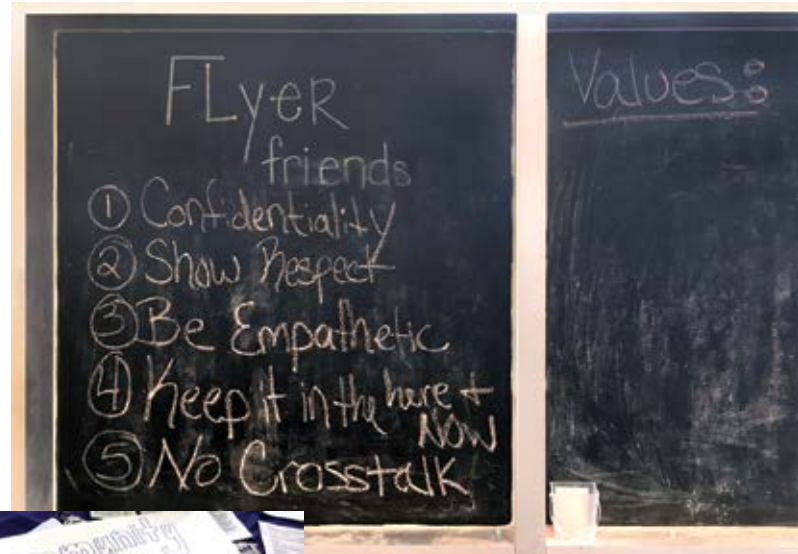 FLyeR
friends
① Confidentiality
② Show Respect
③ Be Empathetic
④ Keep it in the here +
NOW
⑤ No Crosstalk
Values: